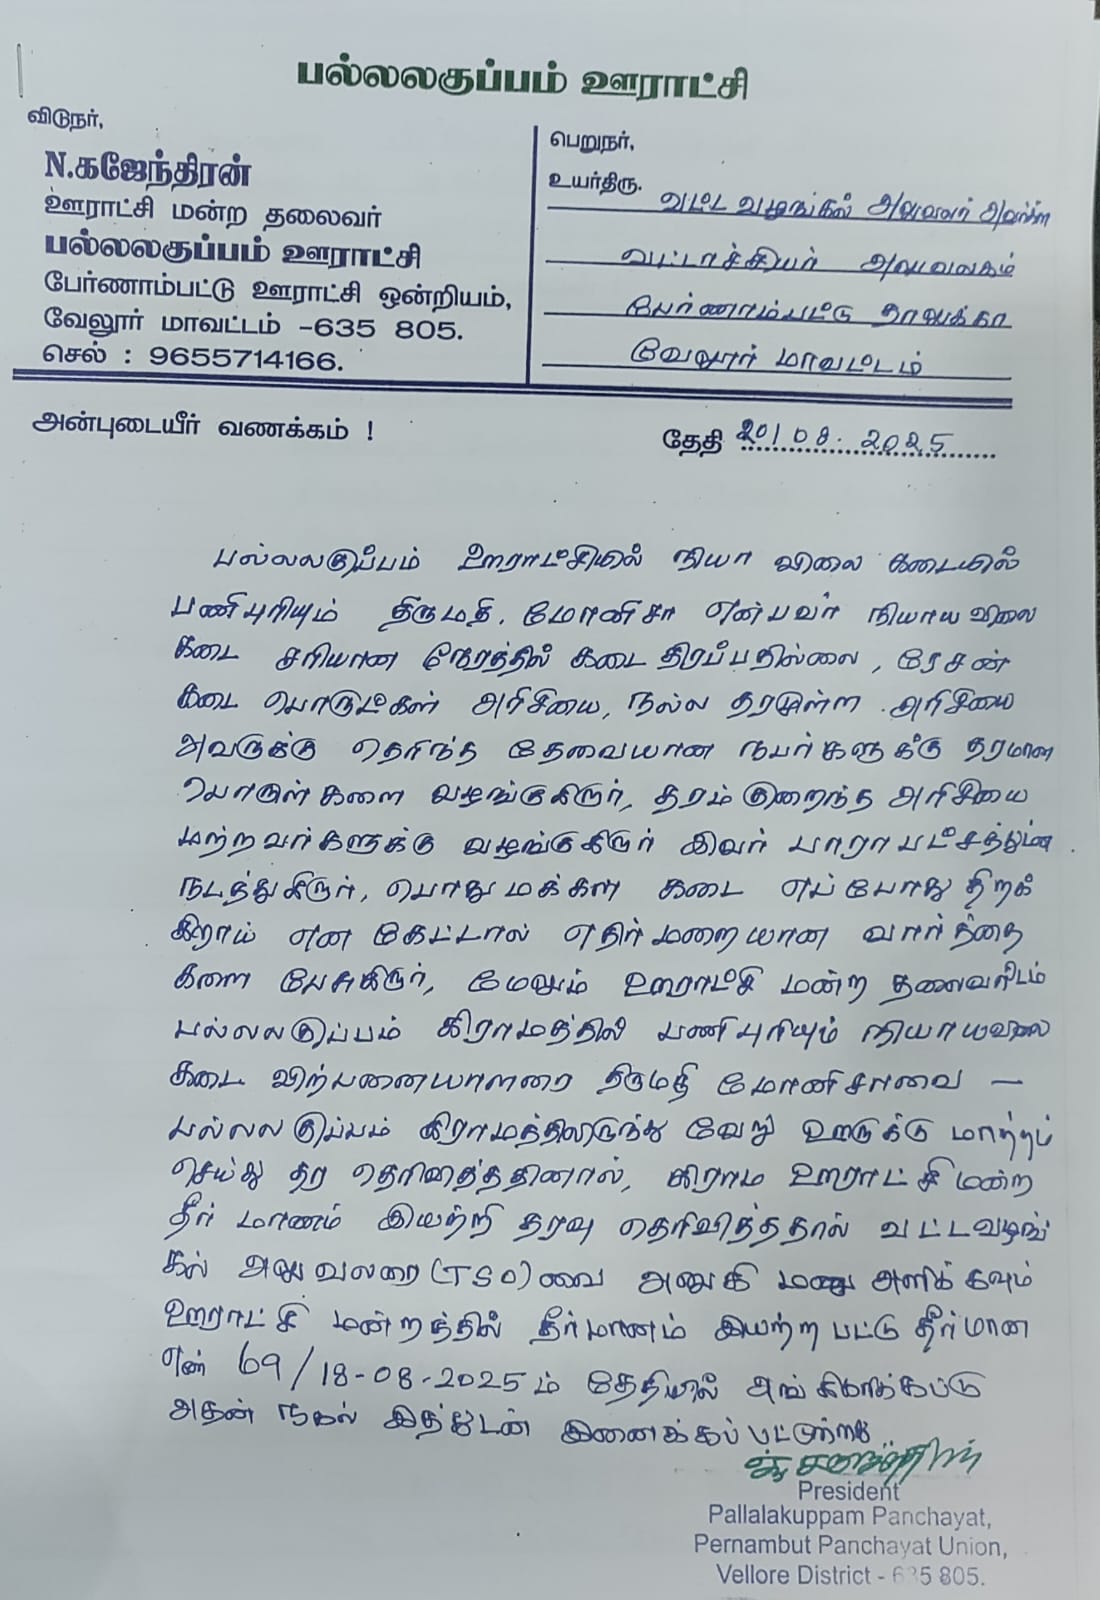 பல்லலகுப்பம் ஊராட்சி
விடுநர்,
N.கஜேந்திரன்
ஊராட்சி மன்ற தலைவர்
பல்லலகுப்பம் ஊராட்சி
பேர்ணாம்பட்டு ஊராட்சி ஒன்றியம்,
வேலூர் மாவட்டம் -635 805.
செல் : 9655714166.
பெறுநர்,
உயர்திரு. வட்ட வழங்கல் அலுவலர் அவர்கள்
வட்டாச்சியர் அலுவலகம்
பேர்ணாம்பட்டு தாலுக்கா
வேலூர் மாவட்டம்
அன்புடையீர் வணக்கம் !
தேதி 20/08.2025
பல்லலகுப்பம் ஊராட்சியில் நியா விலை கடையில்
பணிபுரியும் திருமதி. மோனிசா என்பவர் நியாய விலை
கடை சரியான நேரத்தில் கடை திரப்பதில்லை, ரேசன்
கடை பொருட்கள் அரிசியை, நல்ல தரமுள்ள அரிசியை
அவருக்கு தெரிந்த தேவையான நபர்களுக்கு தரமான
பொருள்களை வழங்குகிறார், தரம் குறைந்த அரிசியை
மற்றவர்களுக்கு வழங்குகிறார் இவர் பாராபட்சத்துடன்
நடத்துகிறார், பொதுமக்கள் கடை எப்போது திறக்
கிறாய் என கேட்டால் எதிர்மறையான வார்த்தை
களை பேசுகிறார், மேலும் ஊராட்சி மன்ற தலைவரிடம்
பல்லலகுப்பம் கிராமத்தில் பணிபுரியும் நியாயவிலை
கடை விற்பனையாளரை திருமதி மோனிசாவை –
பல்லலகுப்பம் கிராமத்திலிருந்து வேறு ஊருக்கு மாற்றம்
செய்து தர தெரிவித்ததினால், கிராம ஊராட்சி மன்ற
தீர்மானம் இயற்றி தரவு தெரிவித்ததால் வட்டவழங்
கல் அலுவலரை (TSO)வை அணுகி மனு அளிக்கவும்
ஊராட்சி மன்றத்தில் தீர்மானம் இயற்றபட்டு தீர்மான
எண் 69/18-08-2025ம் தேதியில் அங்கிகரிக்கபட்டு
அதன் நகல் இத்துடன் இணைக்கப்பட்டுள்ளது.
President
Pallalakuppam Panchayat,
Pernambut Panchayat Union,
Vellore District - 635 805.